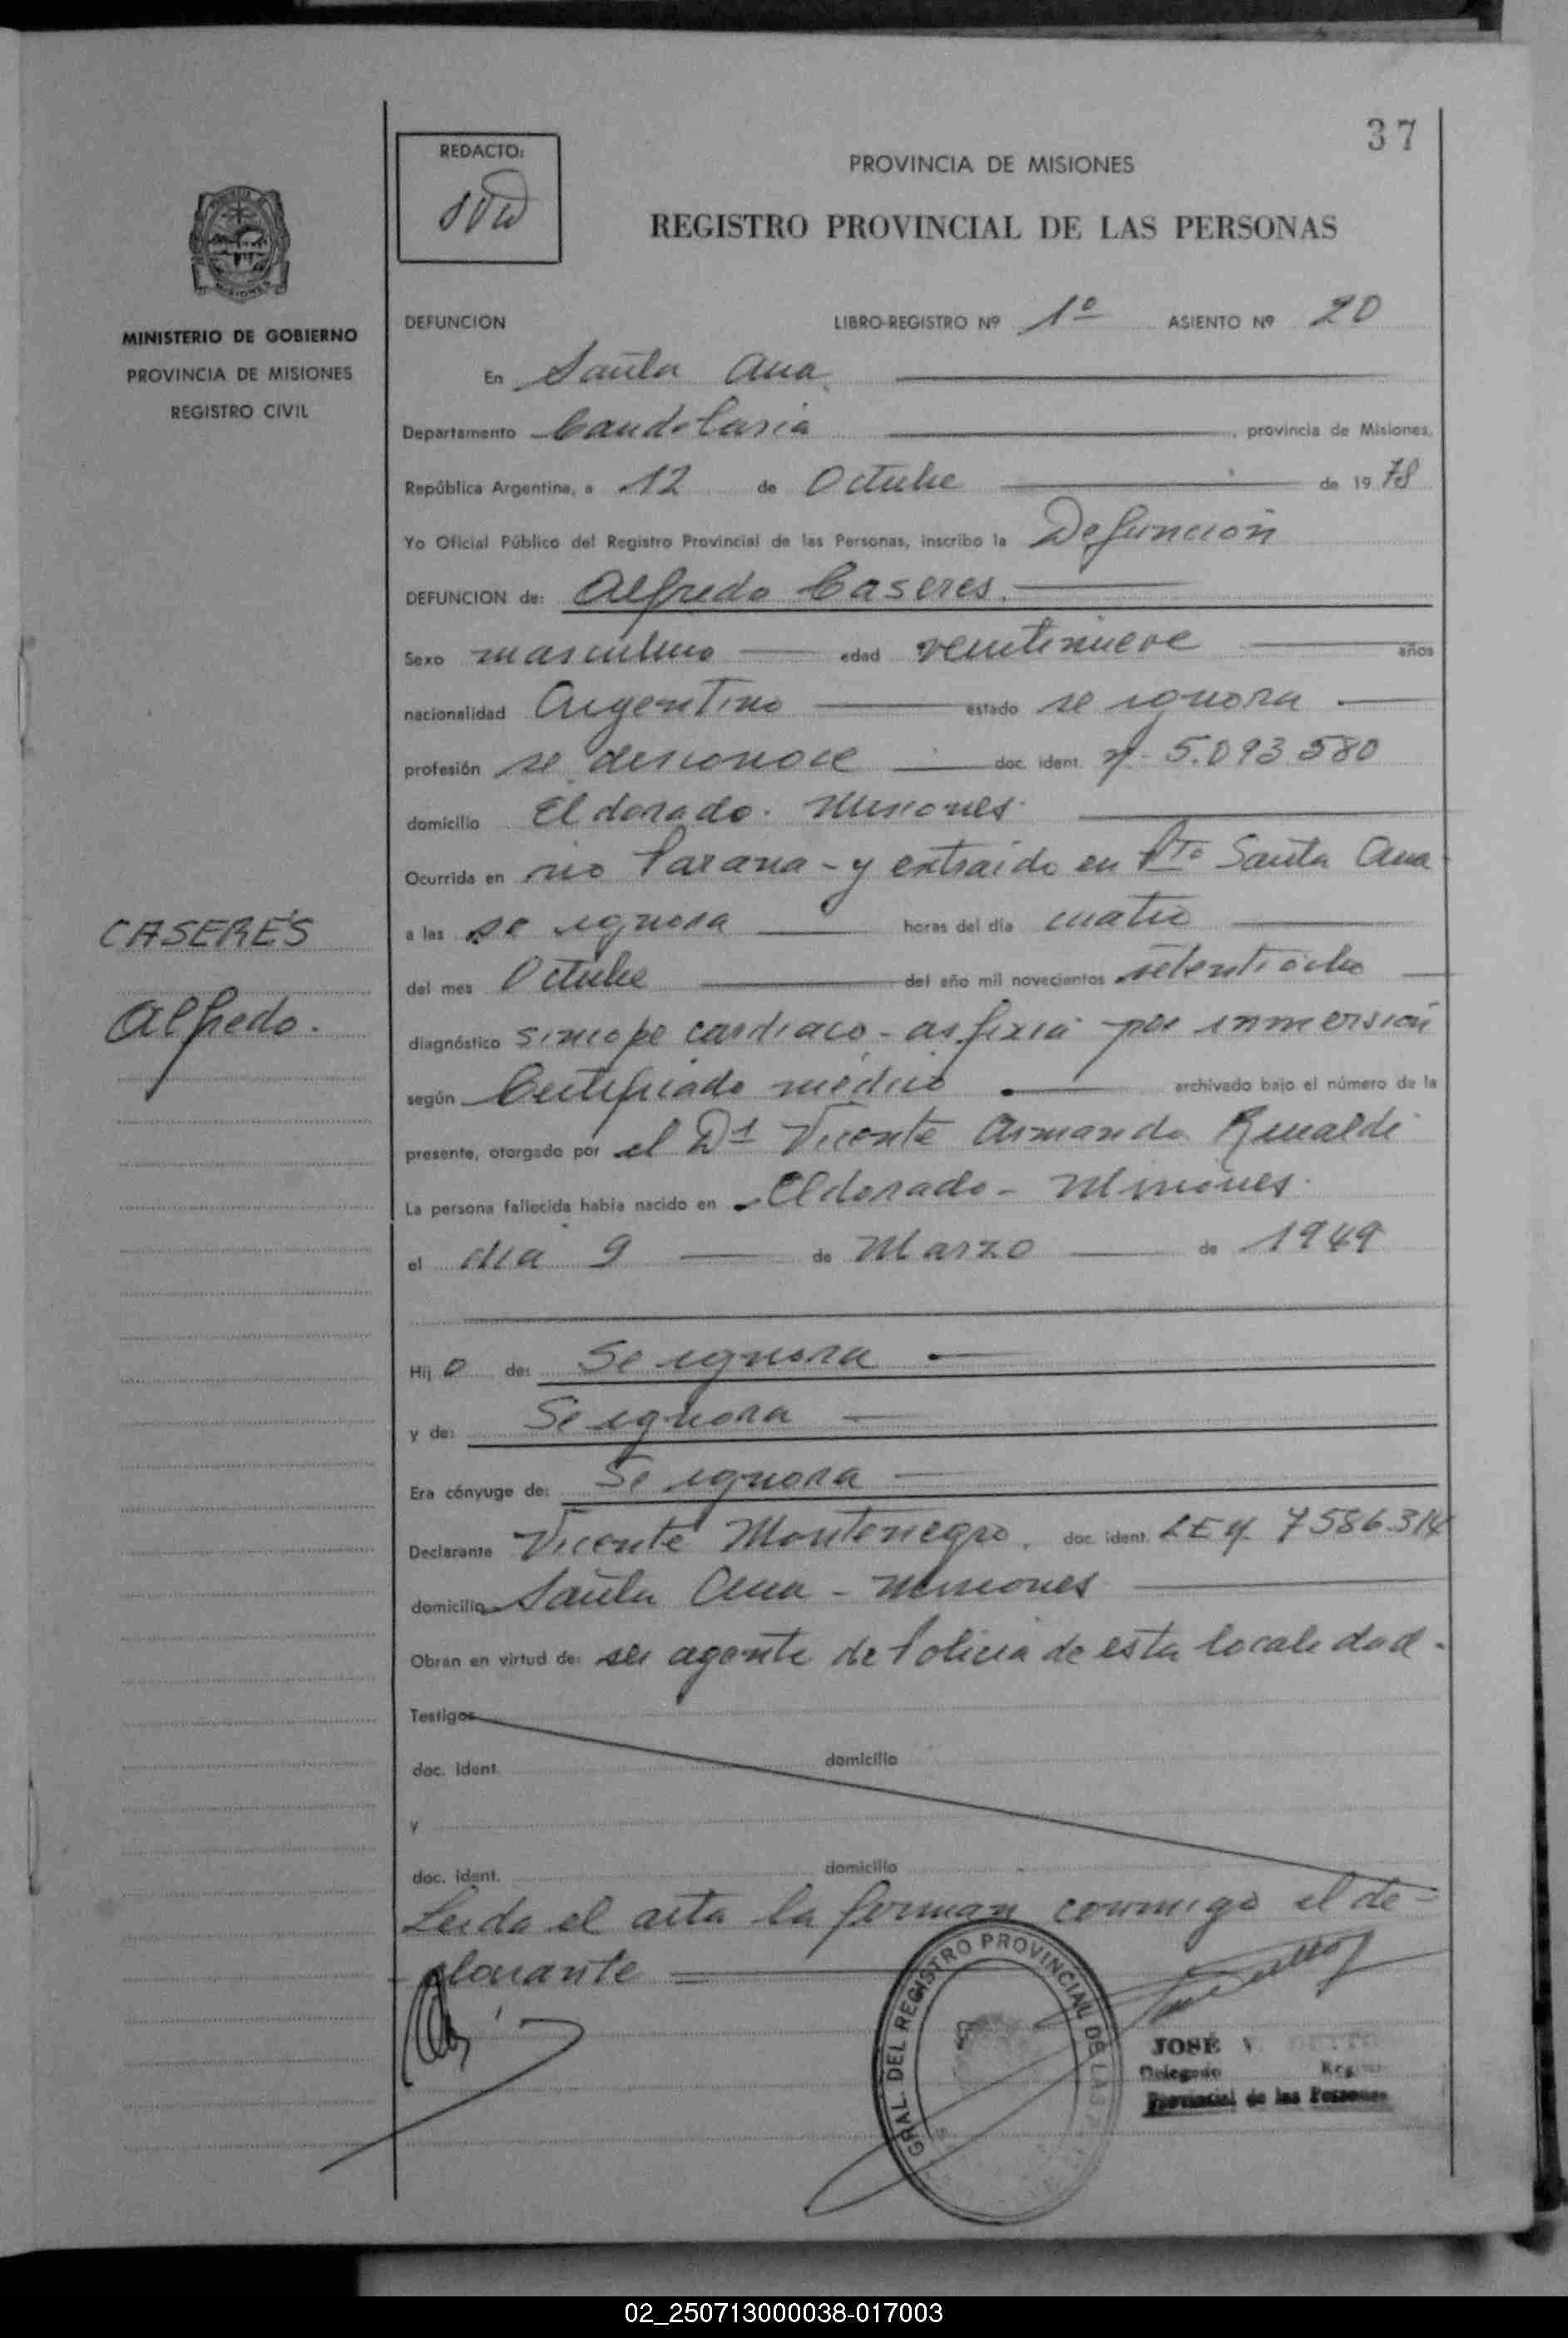 37
REDACTO:
PROVINCIA DE MISIONES
REGISTRO PROVINCIAL DE LAS PERSONAS
MINISTERIO DE GOBIERNO
PROVINCIA DE MISIONES
REGISTRO CIVIL
DEFUNCION LIBRO-REGISTRO Nº 1º ASIENTO Nº 20
En Santa Ana
Departamento Candelaria, provincia de Misiones,
República Argentina, a 12 de Octubre de 1978
Yo Oficial Público del Registro Provincial de las Personas, inscribo la Defunción
DEFUNCION de: Alfredo Caseres.
Sexo masculino edad veintinueve años
nacionalidad Argentino estado se ignora
profesión se desconoce doc. ident. Nº 5.093.580
domicilio Eldorado. Misiones.
Ocurrida en rio Parana - y extraido en Pto Santa Ana
CASERES
a las se ignora horas del día cuatro
del mes Octubre del año mil novecientos setentiocho
Alfredo.
diagnóstico sincope cardiaco - asfixia por inmersión
según Certificado médico archivado bajo el número de la
presente, otorgado por el Dr Vicente Armando Rinaldi
La persona fallecida había nacido en Eldorado - Misiones.
el dia 9 de Marzo de 1949
Hijo de: Se ignora
y de: Se ignora
Era cónyuge de: Se ignora
Declarante Vicente Montenegro. doc. ident. LE Nº 7586.314
domicilio Santa Ana - Misiones
Obran en virtud de: ser agente de Policia de esta localidad.
Testigos
doc. ident. domicilio
y
doc. ident. domicilio
Leida el acta la firman conmigo el de-
clarante
GRAL. DEL REGISTRO PROVINCIAL DE LAS
JOSÉ V.
Delegado
Provincial de las Personas
02_250713000038-017003